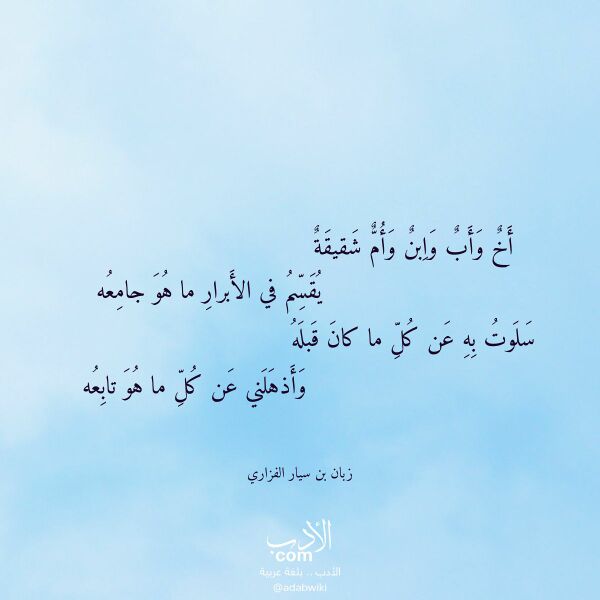 أَخٌ وَأَبٌ وَاِبنٌ وَأُمٌّ شَقيقَةٌ
يُقَسِّمُ في الأَبرارِ ما هُوَ جامِعُه
سَلَوتُ بِهِ عَن كُلِّ ما كانَ قَبلَهُ
وَأَذهَلَني عَن كُلِّ ما هُوَ تابِعُه
زبان بن سيار الفزاري
الأدب
com
الأدب .. بلغة عربية
@adabwiki